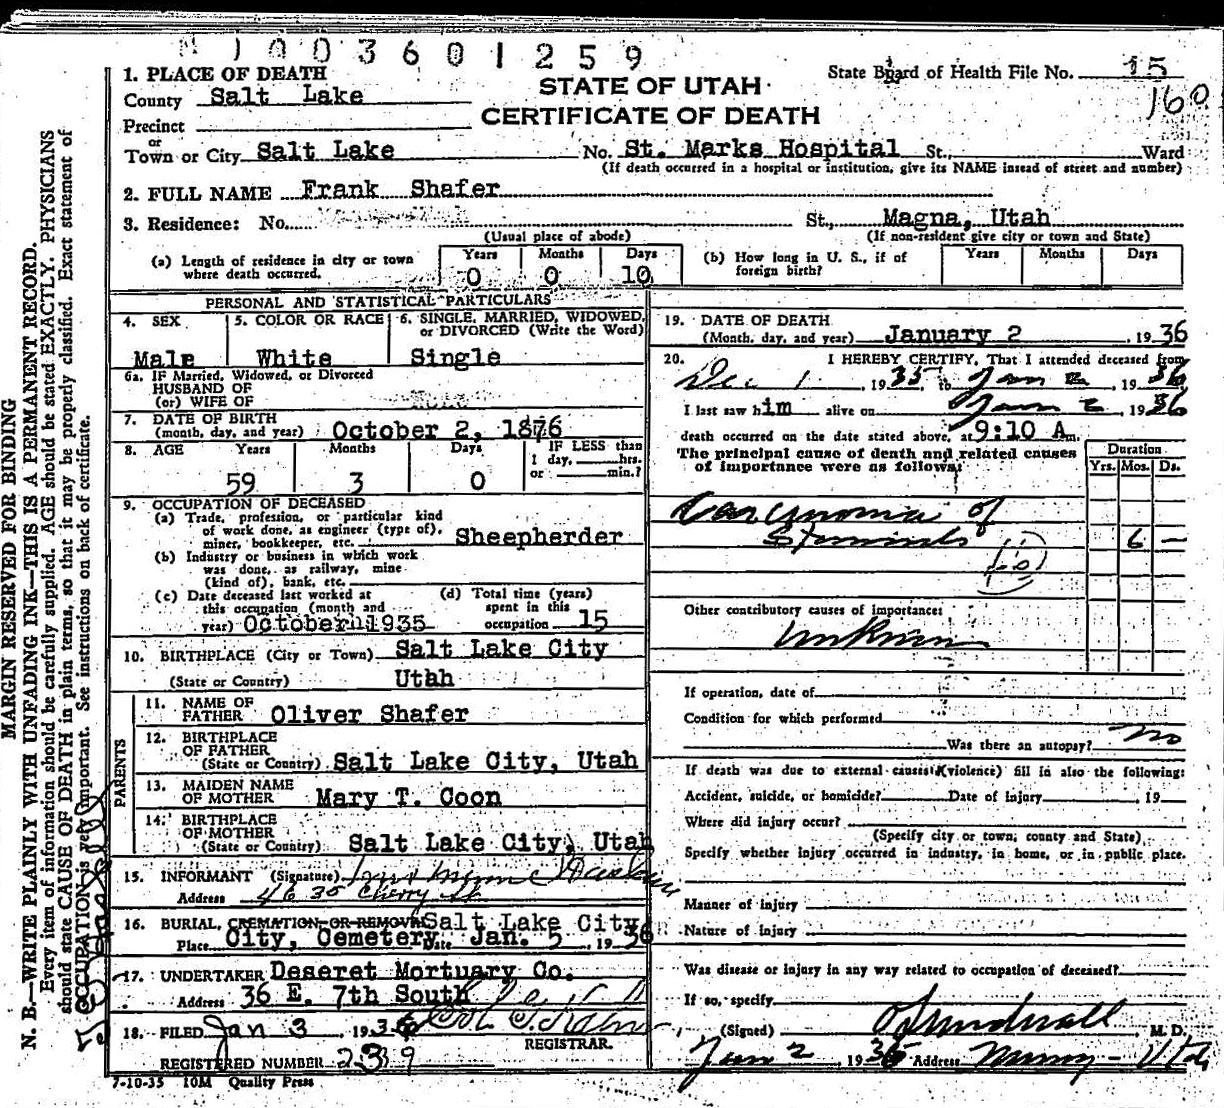 N 1 0 0 3 6 0 1 2 5 9
1. PLACE OF DEATH
County Salt Lake
Precinct
or
Town or City Salt Lake
STATE OF UTAH
CERTIFICATE OF DEATH
State Board of Health File No. 15
160
No. St. Marks Hospital St., Ward
(If death occurred in a hospital or institution, give its NAME insead of street and number)
2. FULL NAME Frank Shafer
3. Residence: No. St., Magna, Utah
(Usual place of abode) (If non-resident give city or town and State)
(a) Length of residence in city or town where death occurred. Years 0 Months 0 Days 10
(b) How long in U. S., if of foreign birth? Years Months Days
PERSONAL AND STATISTICAL PARTICULARS
4. SEX Male
5. COLOR OR RACE White
6. SINGLE, MARRIED, WIDOWED, or DIVORCED (Write the Word) Single
6a. IF Married, Widowed, or Divorced
HUSBAND OF
(or) WIFE OF
7. DATE OF BIRTH
(month, day, and year) October 2, 1876
8. AGE Years 59 Months 3 Days 0
IF LESS than
1 day, hrs.
or min.?
9. OCCUPATION OF DECEASED
(a) Trade, profession, or particular kind
of work done, as engineer (type of),
miner, bookkeeper, etc. Sheepherder
(b) Industry or business in which work
was done, as railway, mine
(kind of), bank, etc.
(c) Date deceased last worked at
this occupation (month and
year) October 1935
(d) Total time (years)
spent in this
occupation 15
10. BIRTHPLACE (City or Town) Salt Lake City
(State or Country) Utah
PARENTS
11. NAME OF
FATHER Oliver Shafer
12. BIRTHPLACE
OF FATHER
(State or Country) Salt Lake City, Utah
13. MAIDEN NAME
OF MOTHER Mary T. Coon
14. BIRTHPLACE
OF MOTHER
(State or Country) Salt Lake City, Utah
15. INFORMANT (Signature)
Address 4635 Cherry St
16. BURIAL, CREMATION OR REMOVAL Salt Lake City
Place City, Cemetery Date Jan. 5, 1936
17. UNDERTAKER Deseret Mortuary Co.
Address 36 E. 7th South
18. FILED Jan 3, 1936
REGISTRAR.
REGISTERED NUMBER 2319
7-10-35 10M Quality Press
19. DATE OF DEATH
(Month, day, and year) January 2, 1936
20. I HEREBY CERTIFY, That I attended deceased from
Dec 1, 1935 to Jan 2, 1936
I last saw him alive on Jan 2, 1936
death occurred on the date stated above, at 9:10 A m.
The principal cause of death and related causes
of importance were as follows:
Duration
Yrs. Mos. Ds.
Carcinoma of
6 —
Other contributory causes of importance:
Unknown
If operation, date of
Condition for which performed
Was there an autopsy? no
If death was due to external causes (violence) fill in also the following:
Accident, suicide, or homicide? Date of injury , 19
Where did injury occur?
(Specify city or town, county and State)
Specify whether injury occurred in industry, in home, or in public place.
Manner of injury
Nature of injury
Was disease or injury in any way related to occupation of deceased?
If so, specify
(Signed) M. D.
Jan 2, 1936 Address Murray - Utah
MARGIN RESERVED FOR BINDING
N. B.—WRITE PLAINLY WITH UNFADING INK—THIS IS A PERMANENT RECORD.
Every item of information should be carefully supplied. AGE should be stated EXACTLY. PHYSICIANS
should state CAUSE OF DEATH in plain terms, so that it may be properly classified. Exact statement of
OCCUPATION is very important. See instructions on back of certificate.